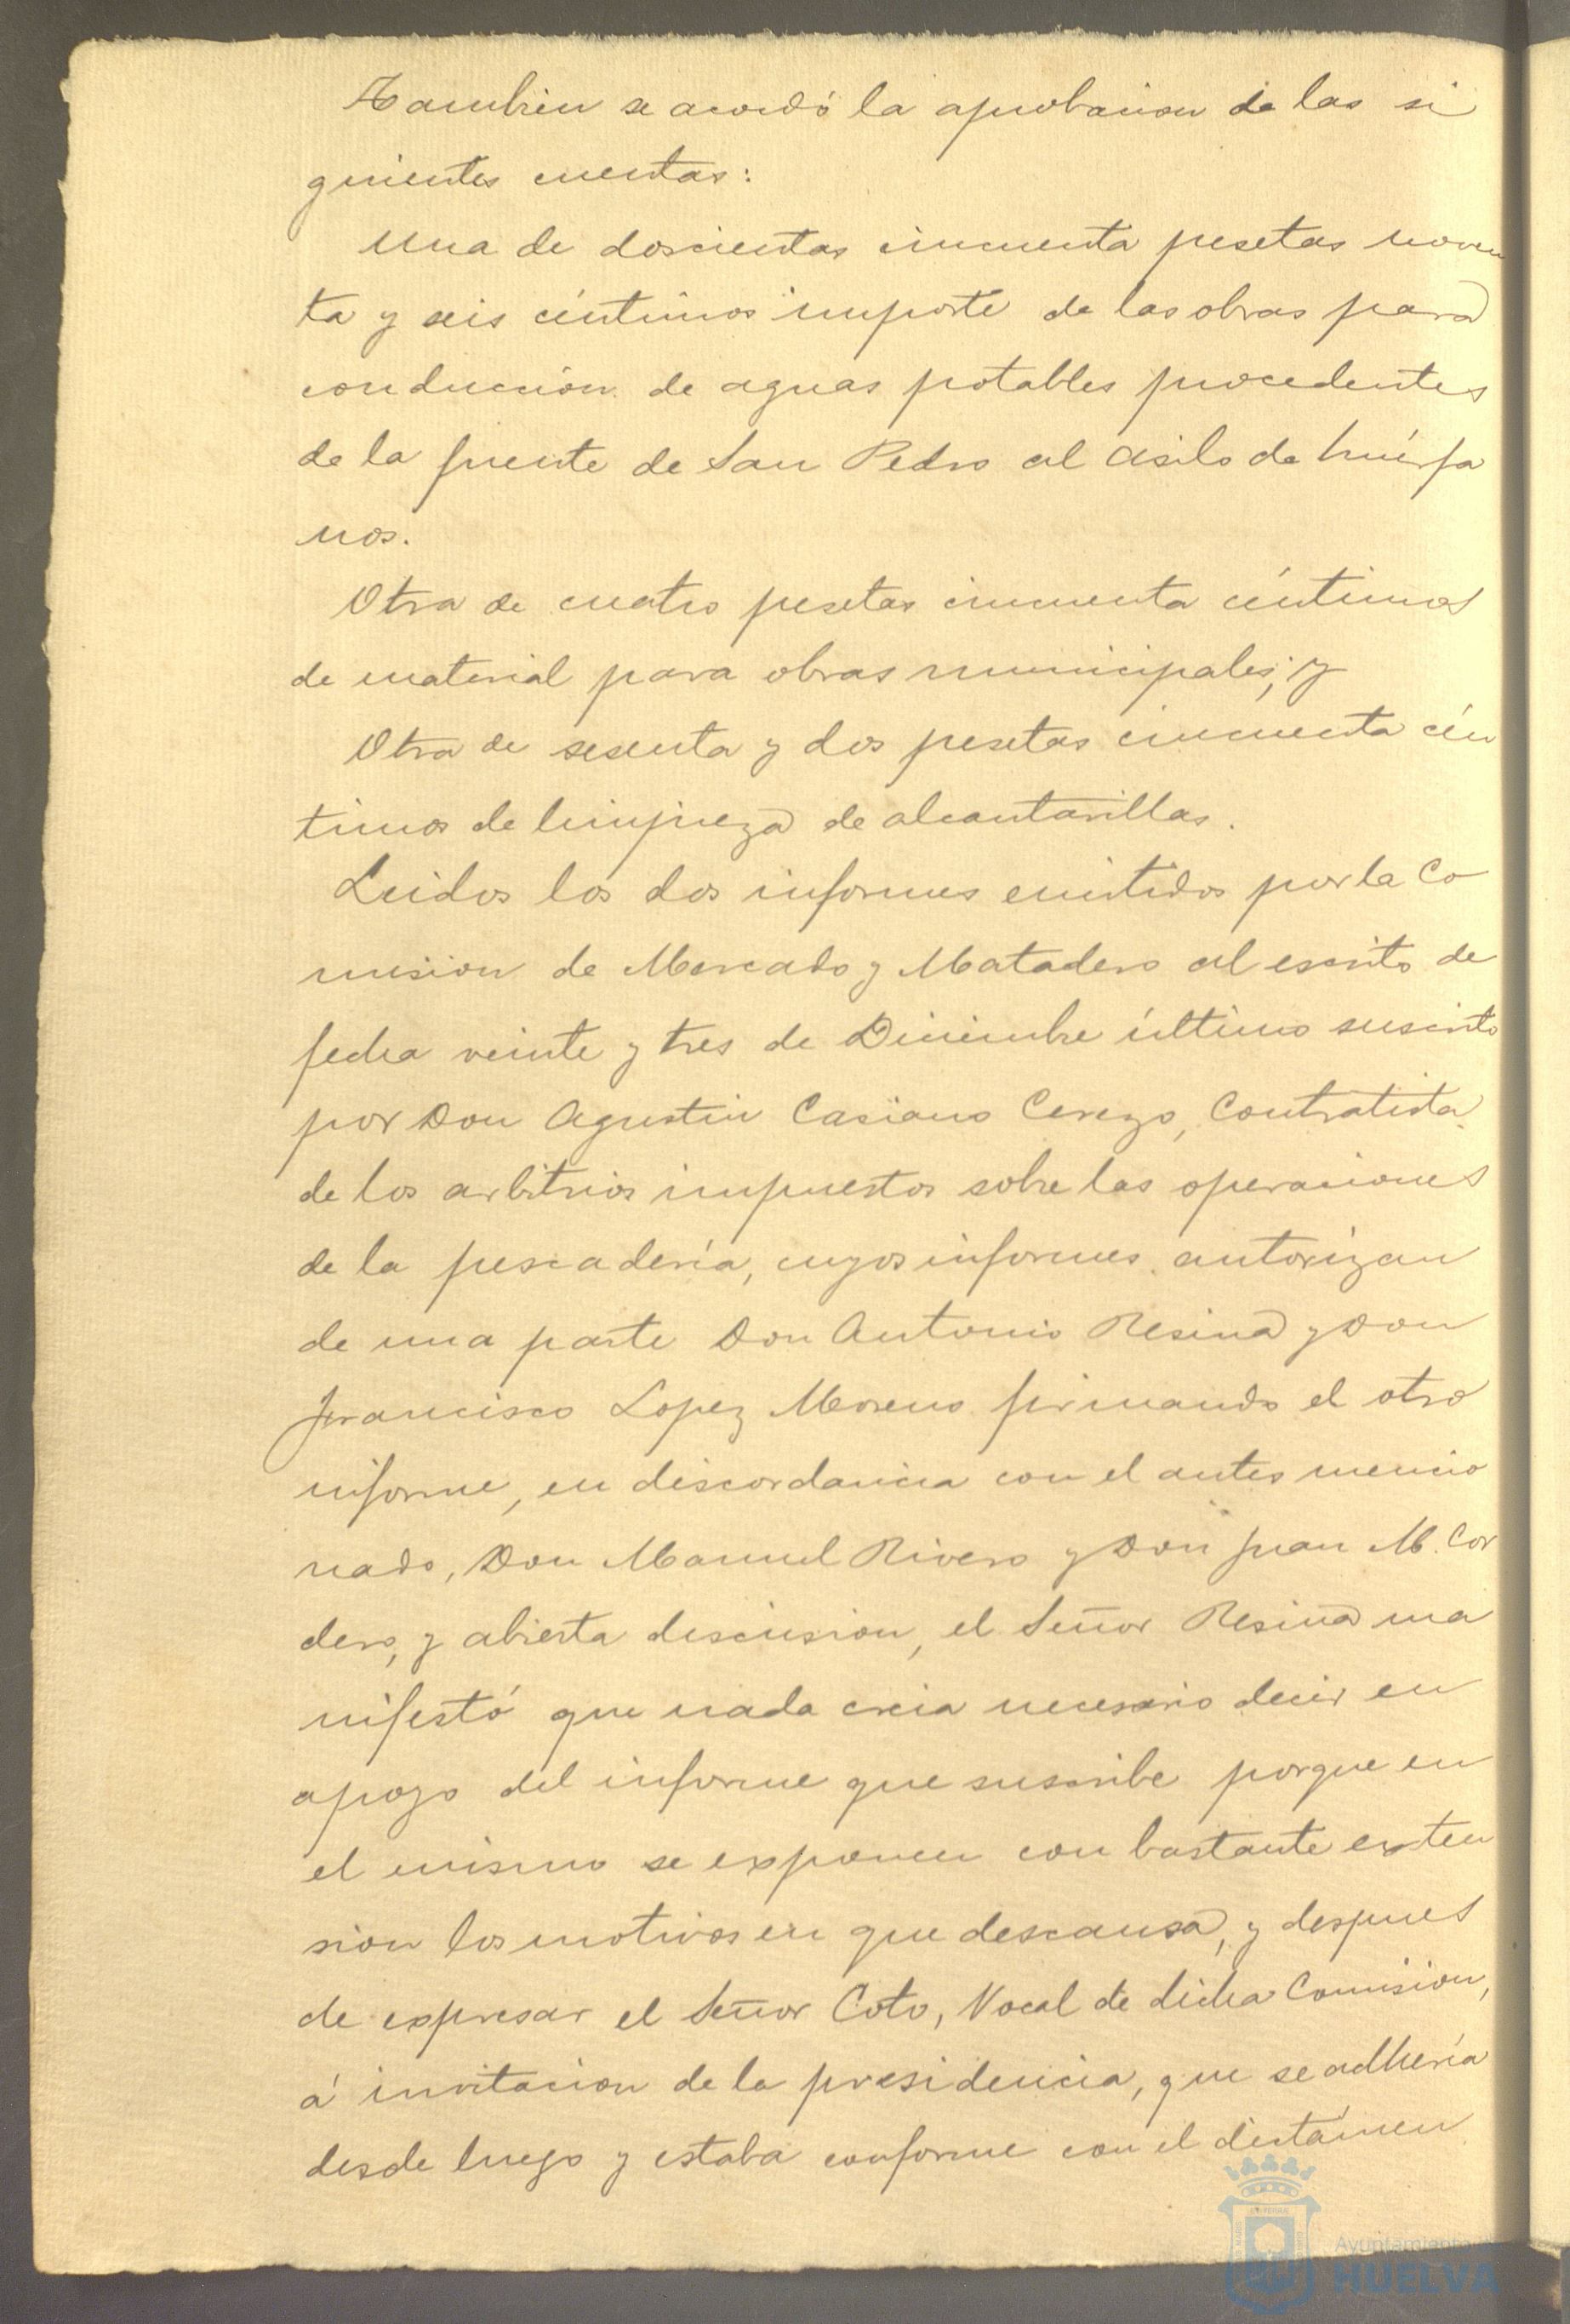 Tambien se acordó la aprobacion de las si
guientes cuentas:
Una de doscientas cincuenta pesetas noven
ta y seis céntimos importe de las obras para
conduccion de aguas potables procedentes
de la fuente de San Pedro al Asilo de huérfa
nos.
Otra de cuatro pesetas cincuenta céntimos
de material para obras municipales; y
Otra de sesenta y dos pesetas cincuenta cén
timos de limpieza de alcantarillas.
Leidos los dos informes emitidos por la Co
mision de Mercado y Matadero al escrito de
fecha veinte y tres de Diciembre último suscrito
por Don Agustin Casiano Cerezo, Contratista
de los arbitrios impuestos sobre las operaciones
de la pescadería, cuyos informes autorizan
de una parte Don Antonio Resina y Don
Francisco Lopez Moreno firmando el otro
informe, en discordancia con el antes mencio
nado, Don Manuel Rivero y Don Juan M. Cor
dero, y abierta discusion, el Señor Resina ma
nifestó que nada creia necesario decir en
apoyo del informe que suscribe porque en
el mismo se exponen con bastante exten
sion los motivos en que descansa, y despues
de expresar el Señor Coto, Vocal de dicha Comision,
á invitacion de la presidencia, que se adhería
desde luego y estaba conforme con el dictámen
Ayuntamiento de
HUELVA